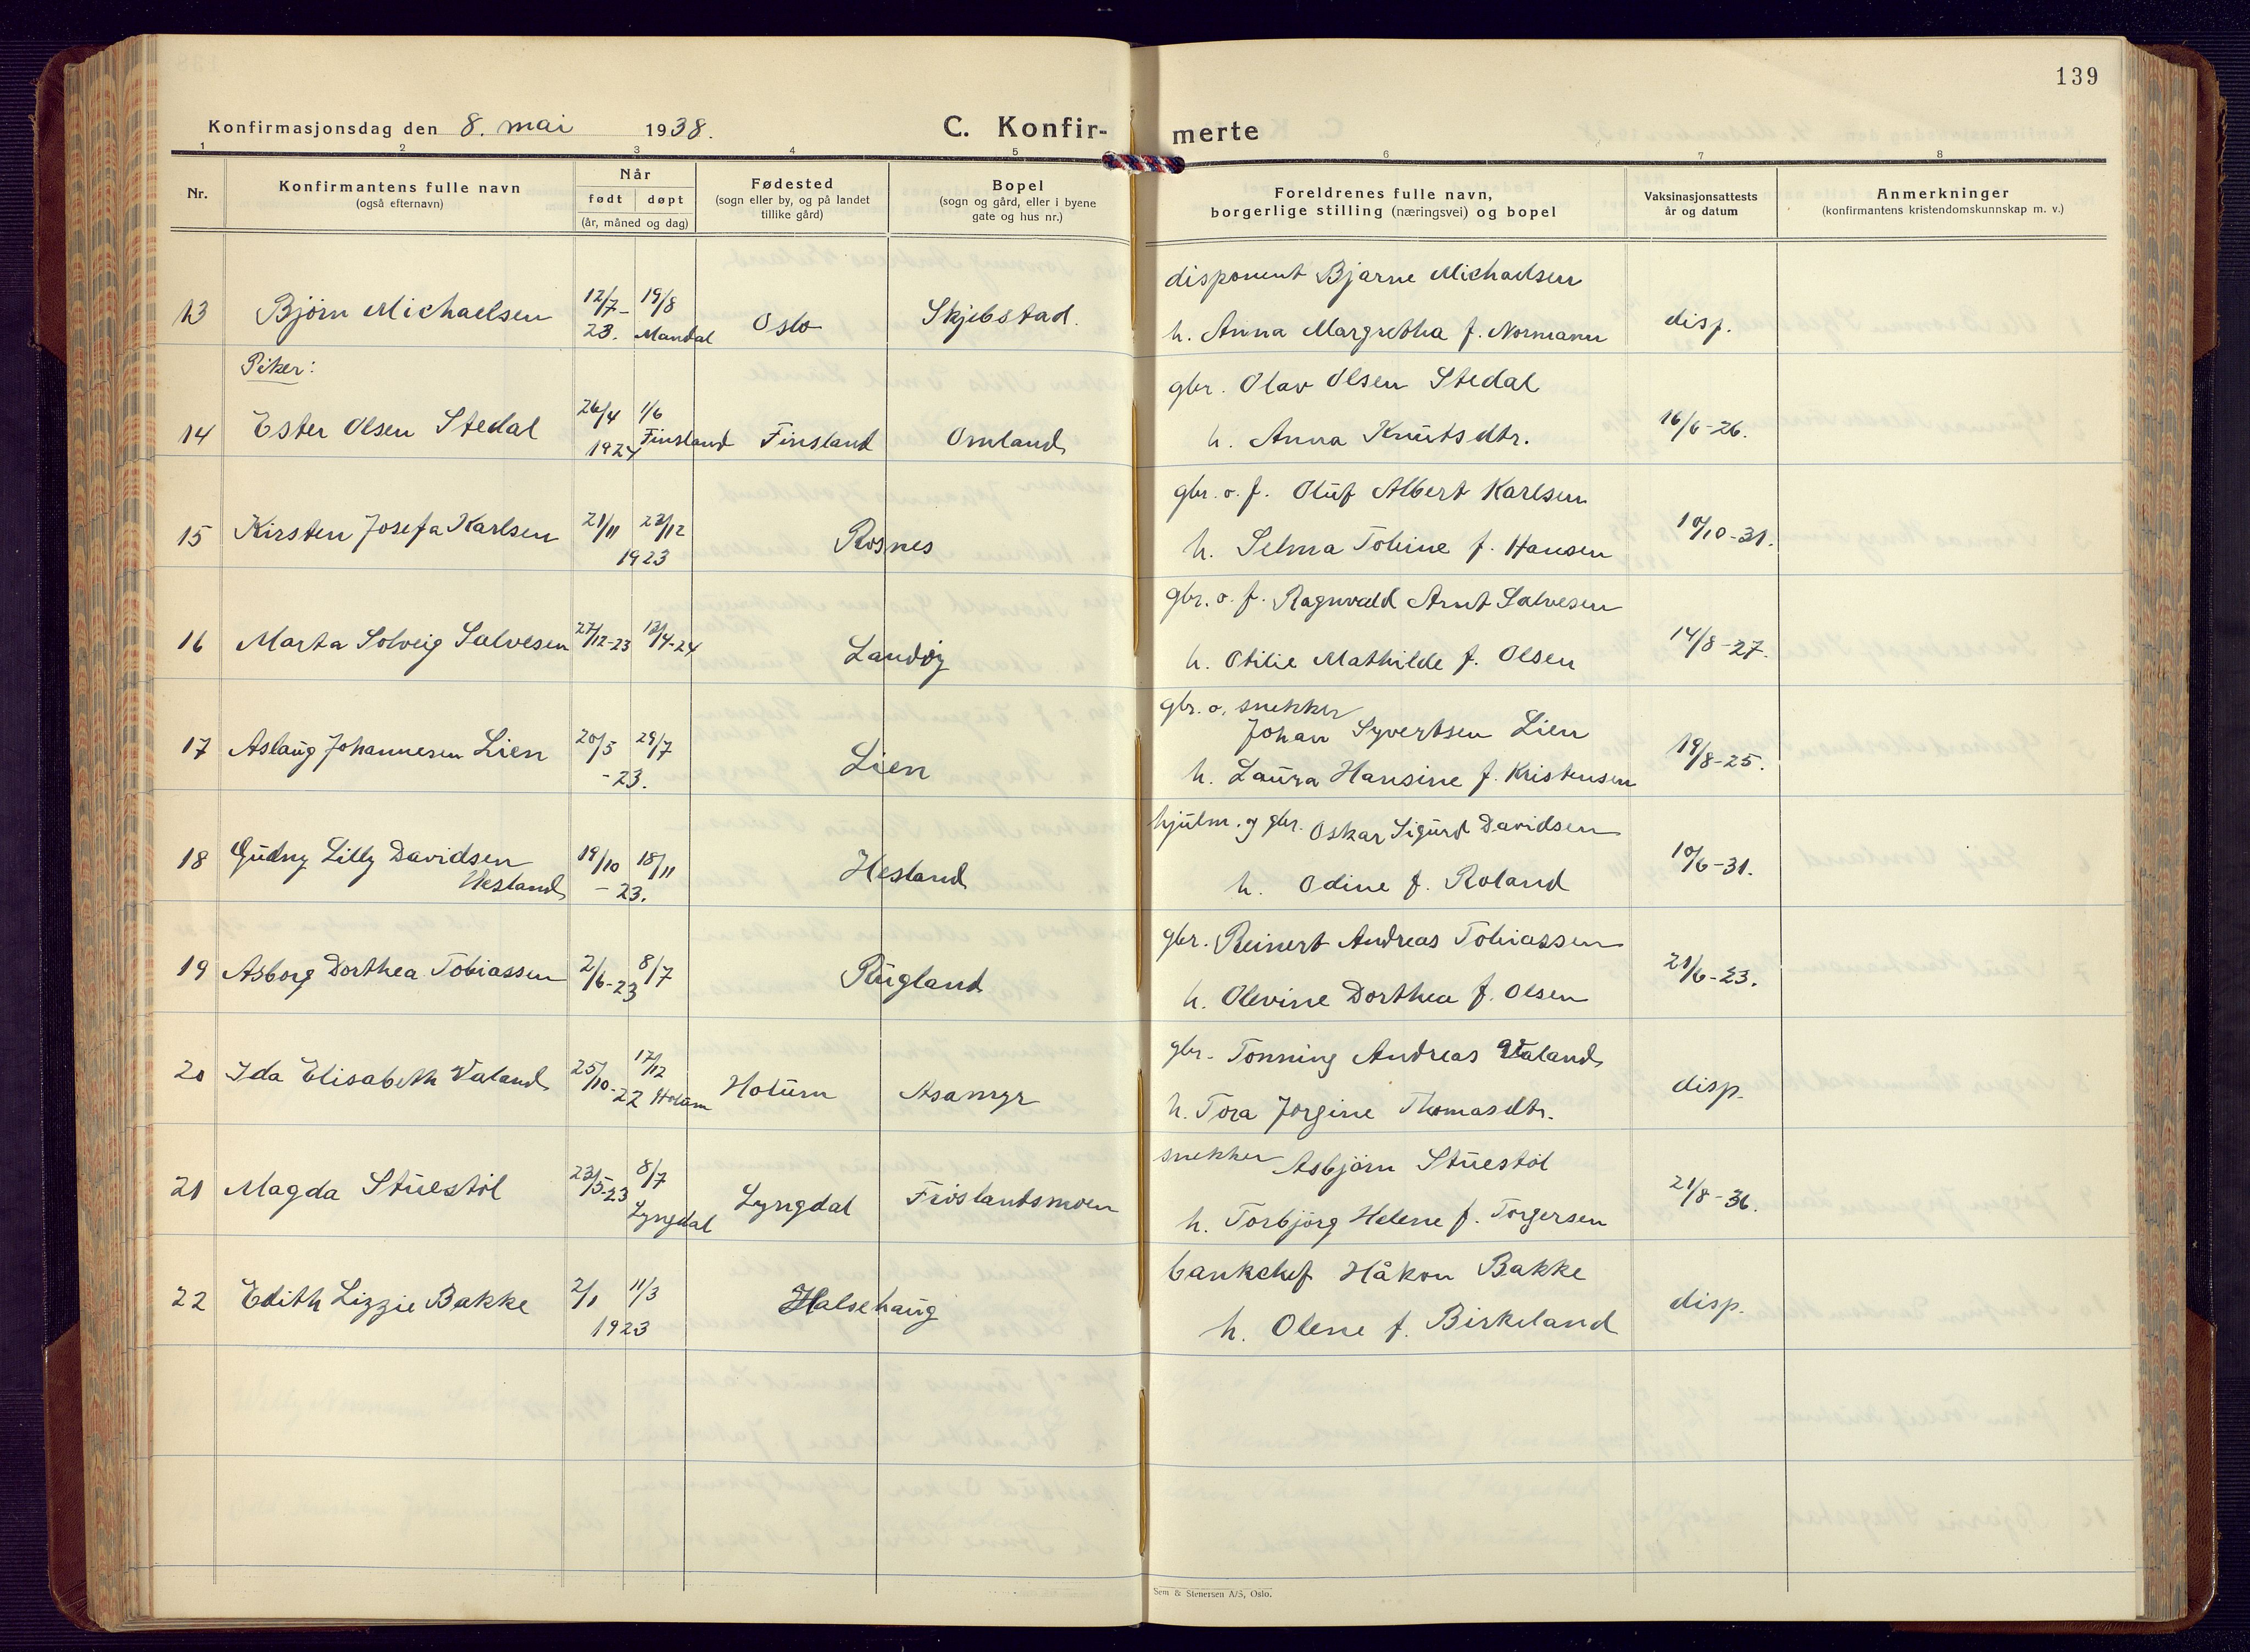 139
Konfirmasjonsdag den 8. mai 1938.
C. Konfir-
merte
1 2 3 4 5 6 7 8
Nr.
Konfirmantens fulle navn
(også efternavn)
Når
født døpt
(år, måned og dag)
Fødested
(sogn eller by, og på landet
tillike gård)
Bopel
(sogn og gård, eller i byene
gate og hus nr.)
Foreldrenes fulle navn,
borgerlige stilling (næringsvei) og bopel
Vaksinasjonsattests
år og datum
Anmerkninger
(konfirmantens kristendomskunnskap m. v.)
disponent Bjarne Michaelsen
13 Bjørn Michaelsen 12/7- 19/8 Oslo Skjebstad. disp.
23. Mandal h. Anna Margrethe f. Normann
Piker:
gbr. Olav Olsen Stedal
14 Ester Olsen Stedal 26/4 1/6 Finsland Omland 16/6-26.
1924 Finsland h. Anna Knutsdtr.
gbr. o. f. Oluf Albert Karlsen
15 Kirsten Josefa Karlsen 21/11 23/12 Rosnes 10/10-31.
1923 h. Selma Tobine f. Hansen
gbr. o. f. Ragnvald Arnt Salvesen
16 Marta Solveig Salvesen 27/12-23 13/4-24 Landøy 14/8-27.
h. Otilie Mathilde f. Olsen
gbr. o. snekker
Johan Syvertsen Lien
17 Aslaug Johannesen Lien 20/5 29/7 Lien 19/8-25.
-23. h. Laura Hansine f. Kristensen
hjulm. og gbr. Oskar Sigurd Davidsen
18 Gudny Lilly Davidsen 19/10 18/11 Hesland 10/6-31.
Hesland -23. h. Odine f. Roland
gbr. Reinert Andreas Tobiassen
19 Asborg Dorthea Tobiassen 2/6-23 8/7 Rugland 21/6-23.
h. Olevine Dorthea f. Olsen
gbr. Tønning Andreas Valand
20 Ida Elisabeth Valand 25/10-22 17/12 Holum Holum Åsamyr disp.
h. Tora Jørgine Thomasdtr.
snekker Asbjørn Stuestøl
21 Magda Stuestøl 23/5-23 8/7 Lyngdal Lyngdal Frøslandsmoen 21/8-36.
h. Torbjørg Helene f. Torgersen
bankchef Håkon Bakke
22 Edith Lizzie Bakke 2/1 11/3 Halsehaug disp.
1923 h. Olene f. Birkeland
Sem & Stenersen A/S, Oslo.